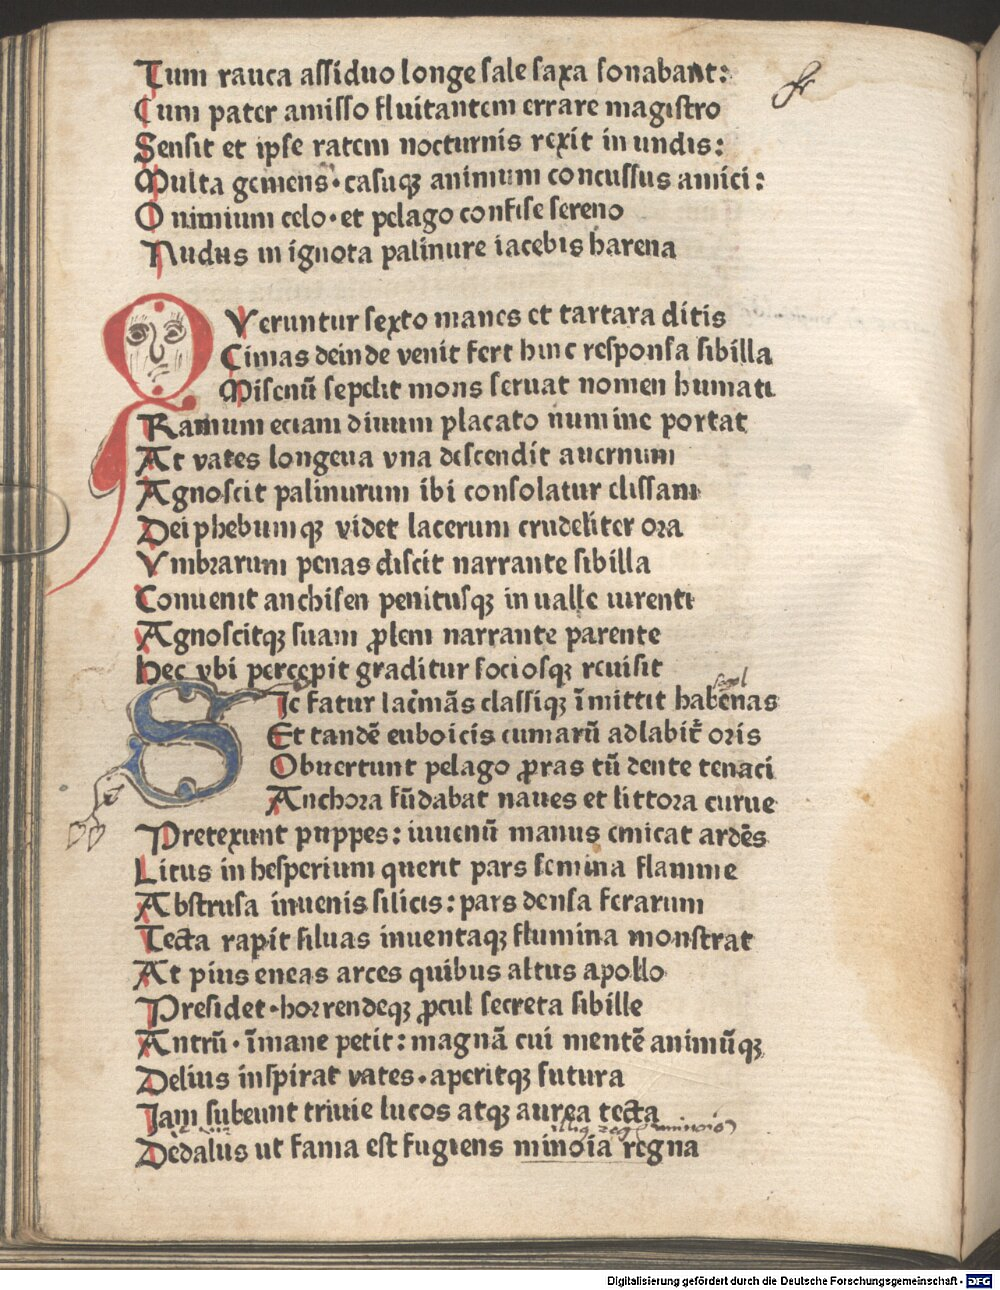 Tum rauca assiduo longe sale saxa sonabant:
Cum pater amisso fluitantem errare magistro
Sensit et ipse ratem nocturnis rexit in undis:
Multa gemens·casuqꝫ animum concussus amici:
O nimium celo·et pelago confise sereno
Nudus in ignota palinure iacebis harena
Q Veruntur sexto manes et tartara ditis
Cimas deinde venit fert hinc responsa sibilla
Misenū sepelit mons seruat nomen humati
Ramum eciam diuum placato numine portat
At vates longeua vna descendit auernum
Agnoscit palinurum ibi consolatur elissam
Deiphebumqꝫ videt lacerum crudeliter ora
Vmbrarum penas discit narrante sibilla
Conuenit anchisen penitusqꝫ in ualle uirenti
Agnoscitqꝫ suam ꝓlem narrante parente
Hec vbi percepit graditur sociosqꝫ reuisit
S Ic fatur lacͥmās classiqꝫ īmittit habenas
Et tandē euboicis cumarū adlabit᷑ oris
Obuertunt pelago ꝓras tū dente tenaci
Anchora fūdabat naues et littora curue
Pretexunt puppes: iuuenū manus emicat ardēs
Litus in hesperium querit pars semina flamme
Abstrusa inuenis silicis: pars densa ferarum
Tecta rapit siluas inuentaqꝫ flumina monstrat
At pius eneas arces quibus altus apollo
Presidet·horrendeqꝫ ꝓcul secreta sibille
Antrū·īmane petit: magnā cui mentē animūqꝫ
Delius inspirat vates·aperitqꝫ futura
Iam subeunt triuie lucos atqꝫ aurea tecta
Dedalus ut fama est fugiens minoia regna
Digitalisierung gefördert durch die Deutsche Forschungsgemeinschaft - DFG